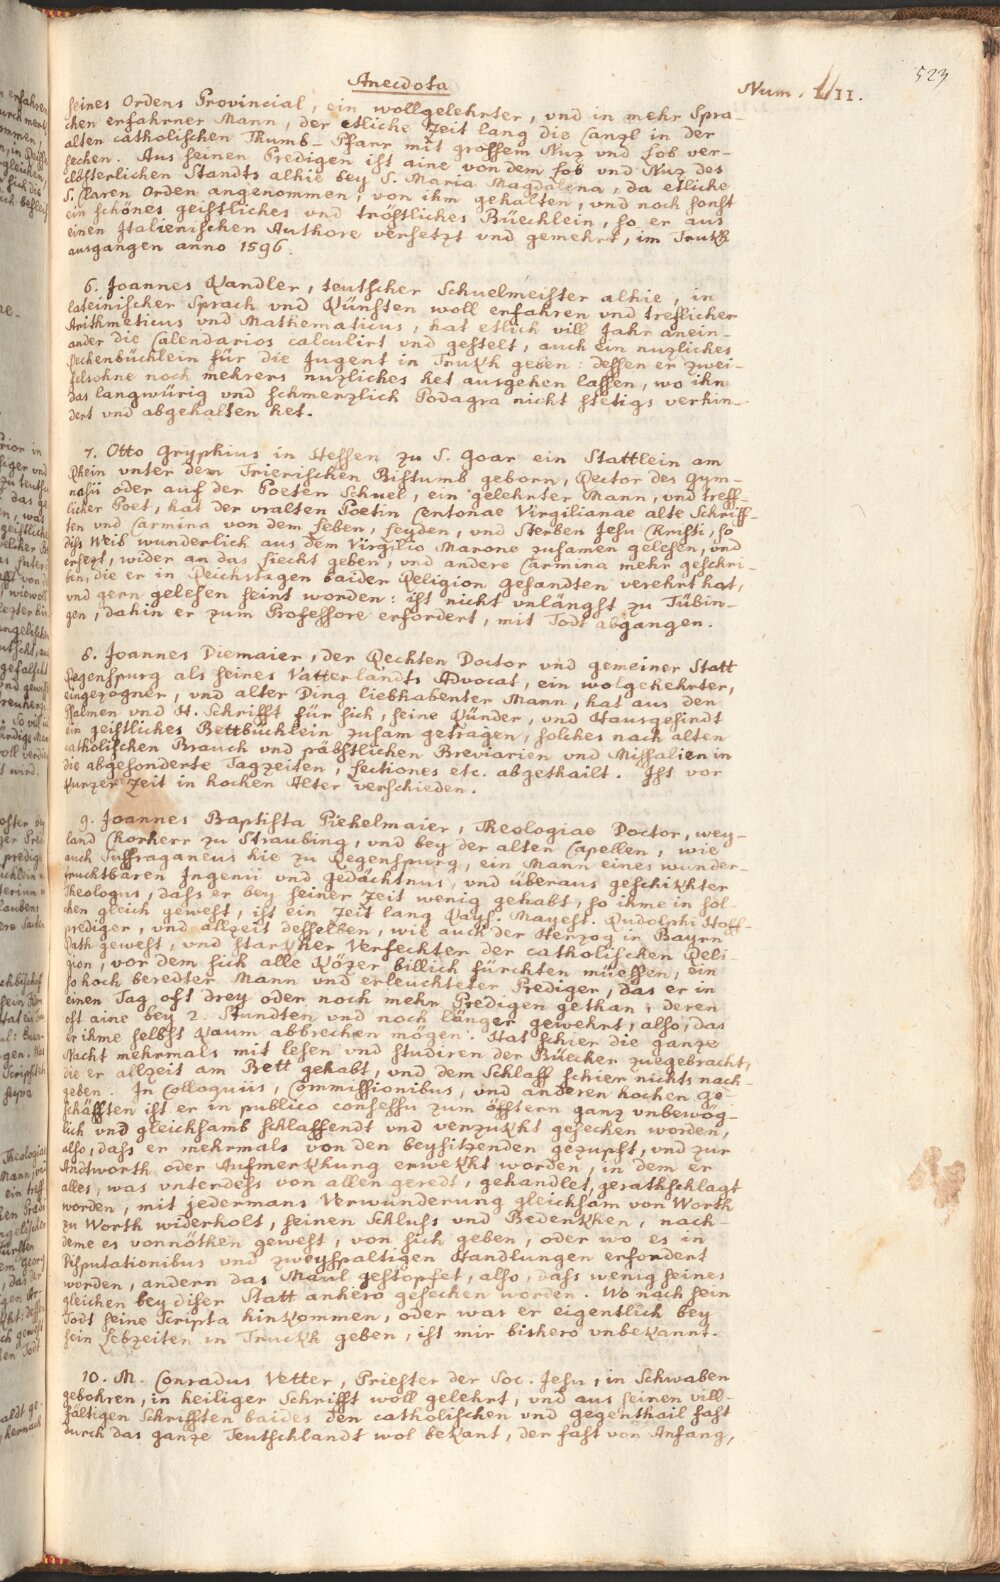 523
Anecdota
Num. LIII.
seines Ordens Provincial, ein wollgelehrter, vnd in mehr Spra-
chen erfahrner Mann, der etliche Zeit lang die Canzl in der
alten catholischen Thumb-Pfarr mit grossem Nuz vnd Lob ver-
sechen. Aus seinen Predigen ist aine von dem Lob vnd Nuz des
clösterlichen Standts alhie bey S. Maria Magdalena, da etliche
S. Claren Orden angenommen, von ihm gehalten, vnd noch sonst
ein schönes geistliches vnd tröstliches Büechlein, so er aus
einen Italienischen Authore versetzt vnd gemehrt, im Trukk
ausgangen anno 1596.
6. Joannes Kandler, teutscher Schuelmeister alhie, in
lateinischer Sprach vnd Künsten woll erfahren vnd treflicher
Arithmeticus vnd Mathematicus, hat etlich vill Jahr anein-
ander die Calendarios calculirt vnd gestelt, auch ein nuzliches
Rechenbüchlein für die Jugent in Trukh geben: dessen er zwei-
felsohne noch mehrers nuzliches het ausgehen lassen, wo ihn
das langwürig vnd schmerzlich Podagra nicht stetigs verhin-
dert vnd abgehalten het.
7. Otto Gryphius in Hessen zu S. Goar ein Stattlein am
Rhein vnter dem Trierischen Bistumb geborn, Rector des Gym-
nasii oder auf der Poeten Schuel, ein gelehrter Mann, vnd treff-
licher Poet, hat der vralten Poetin Centonae Virgilianae alte Schriff-
ten vnd Carmina von dem Leben, Leyden, vnd Sterben Jesu Christi, so
diss Weib wunderlich aus dem Virgilio Marone zusamen gelesen, vnd
ersezt, wider an das Liecht geben, vnd andere Carmina mehr geschri-
ben, die er in Reichstägen baider Religion gesandten verehrt hat,
vnd gern gelesen seint worden: ist nicht vnlängst zu Tübin-
gen, dahin er zum Professore erfordert, mit Todt abgangen.
8. Joannes Diemaier, der Rechten Doctor vnd gemeiner Statt
Regenspurg als seines Vatterlandts Advocat, ein wolgekehrter,
eingezogner, vnd alter Ding liebhabenter Mann, hat aus den
Psalmen vnd H. Schrifft für sich, seine Künder, vnd Hausgesindt
ein geistliches Bettbüchlein zusam getragen, solches nach alten
catholischen Brauch vnd päbstlichen Breviarien vnd Missalien in
die abgesonderte Tagzeiten, Lectiones etc. abgethailt. Ist vor
kurzer Zeit in hochen Alter verschieden.
9. Joannes Baptista Pichelmaier, Theologiae Doctor, wey-
land Chorherr zu Straubing, vnd bey der alten Capellen, wie
auch Suffraganeus hie zu Regenspurg, ein Mann eines wunder-
fruchtbaren Ingenii vnd gedächtnus, vnd überaus geschikhter
Theologus, dass er bey seiner Zeit wenig gehabt, so ihme in sol-
chen gleich gewest, ist ein Zeit lang Kays. Mayest. Rudolphi Hoff-
prediger, vnd allzeit desselben, wie auch der Herzog in Bayrn
Rath gewest, vnd starkher Verfechter der catholischen Reli-
gion, vor dem sich alle Käzer billich fürchten müessen, ein
so hoch beredter Mann vnd erleuchteter Prediger, das er in
einen Tag oft drey oder noch mehr Predigen gethan, deren
oft aine bey 2. Stundten vnd noch länger gewehrt, also, das
er ihme selbst kaum abbrechen mögen. Hat schier die ganze
Nacht mehrmals mit lesen vnd studiren der Büecher zuegebracht,
die er allzeit am Bett gehabt, vnd dem Schlaff schier nichts nach-
geben. In Colloquiis, Commissionibus, vnd anderen hochen ge-
schäfften ist er in publico consessu zum öfftern ganz vnbewög-
lich vnd gleichsamb schlaffendt vnd verzukht gesechen worden,
also, dass er mehrmals von den beysitzenden gezupft, vnd zur
Andtworth oder Aufmerkhung erwekkt worden, in dem er
alles, was vnterdess von allen geredt, gehandlet, gerathschlagt
worden, mit jedermans Verwunderung gleichsam von Worth
zu Worth widerholt, seinen Schluss vnd Bedenkhen, nach-
deme es vonnöthen gewest, von sich geben, oder wo es in
Disputationibus vnd zweyspaltigen Handlungen erfordert
worden, andern das Maul gestopfet, also, dass wenig seines
gleichen bey diser Statt anhero gesechen worden. Wo nach sein
Todt seine Scripta hinkommen, oder was er eigentlich bey
sein Lebzeiten in Truckh geben, ist mir bishero vnbekannt.
10. M. Conradus Vetter, Priester der Soc. Jesu, in Schwaben
gebohren, in heiliger Schrifft woll gelehrt, vnd aus seinen vill-
fältigen Schrifften baides den catholischen vnd gegenthail fast
durch das ganze Teutschlandt wol bekant, der fast von Anfang,